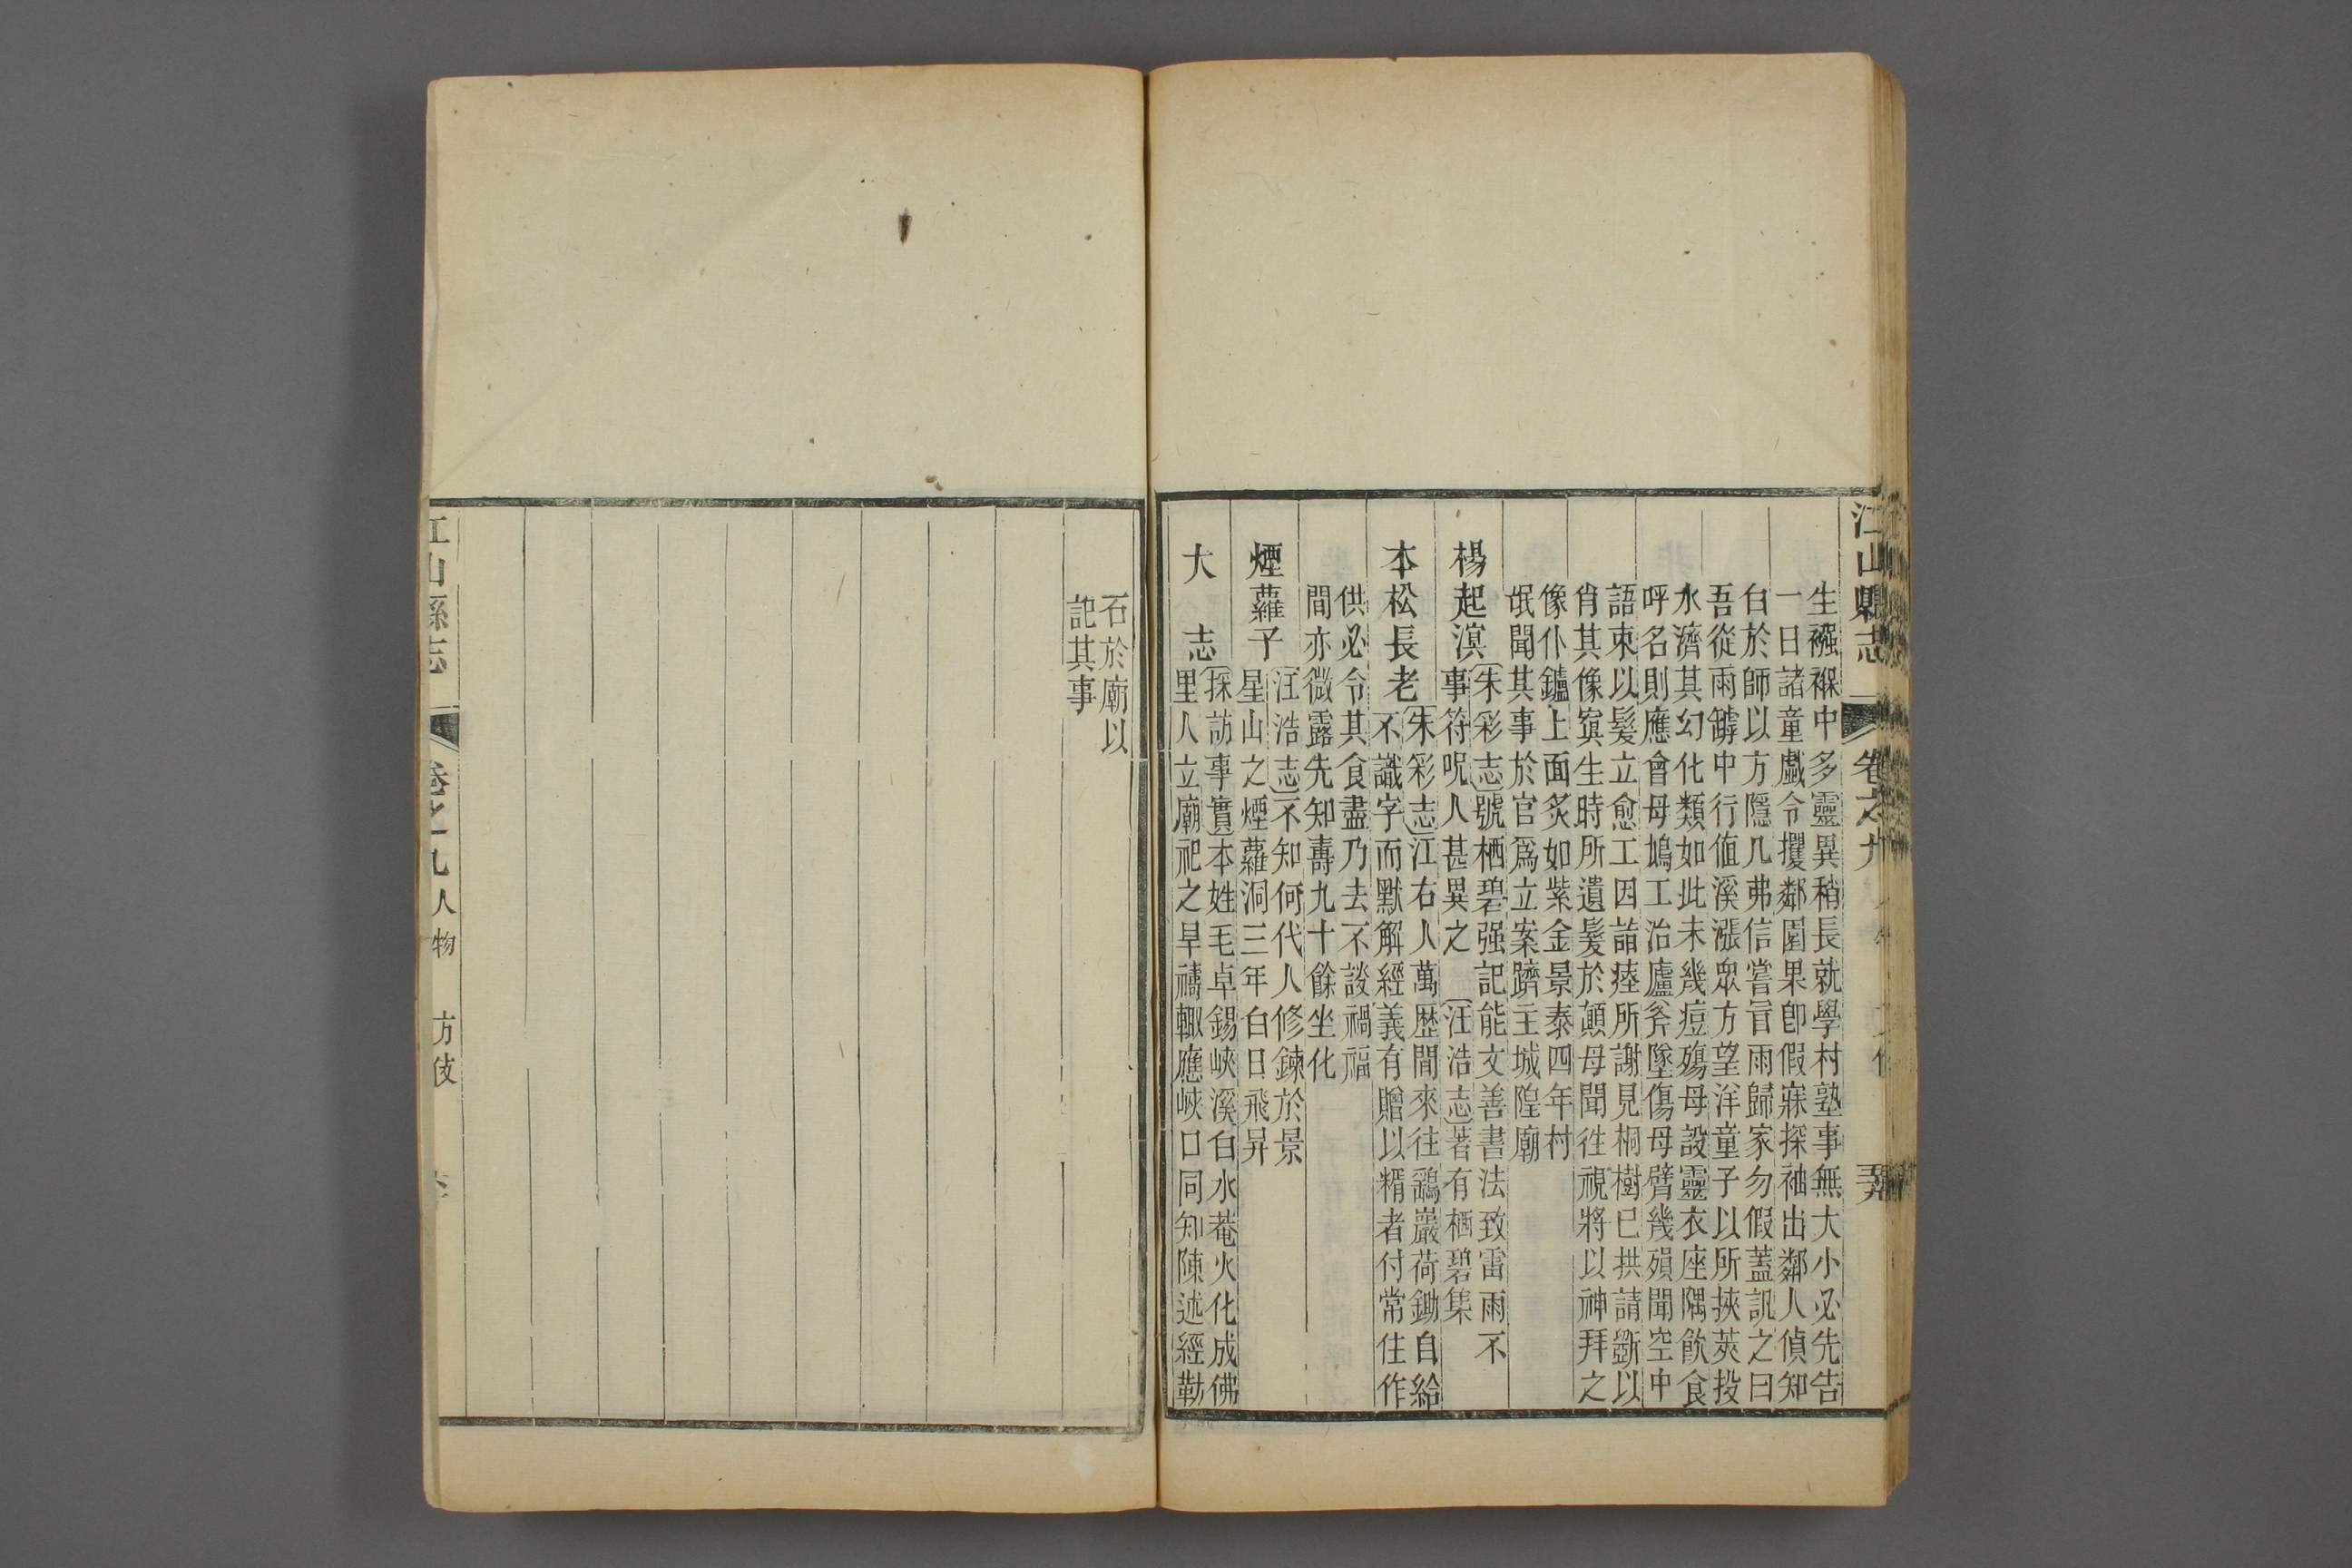 江山縣志
卷之九
生襁褓中多靈異稍長就學村塾事無大小必先告
一日諸童戲令攫鄰園果卽假寐探袖出鄰人偵知
白於師以方隱几弗信嘗旨雨歸家勿假蓋訊之曰
吾從雨罅中行值溪漲眾方望洋童子以所挾莢投
水濟其幻化類如此未幾痘殤母設靈衣座隅飲食
呼名則應會母鳩工治廬斧墜傷母臂幾殞聞空中
語束以髮立愈工因詰瘞所謝見桐樹已拱請斵以
肖其像寘生時所遺髮於顛母聞徃視將以神拜之
像仆鑪上面炙如紫金景泰四年村
氓聞其事於官爲立案躋主城隍廟
楊起溟
朱彩志號栖碧强記能文善書法致雷雨不
事符呪人甚異之 汪浩志著有栖碧集
本松長老
朱彩志江右人萬歴間來往鷂巖荷鋤自給
不識字而默解經義有贈以糈者付常住作
供必令其食盡乃去不談禍福
間亦微露先知壽九十餘坐化
煙蘿子
汪浩志不知何代人修鍊於景
星山之煙蘿洞三年白日飛昇
大志
採訪事實本姓毛卓錫峽溪白水菴火化成佛
里人立廟祀之旱禱輙應峽口同知陳述經勒
石於廟以
記其事
江山縣志
卷之九人物 方伎